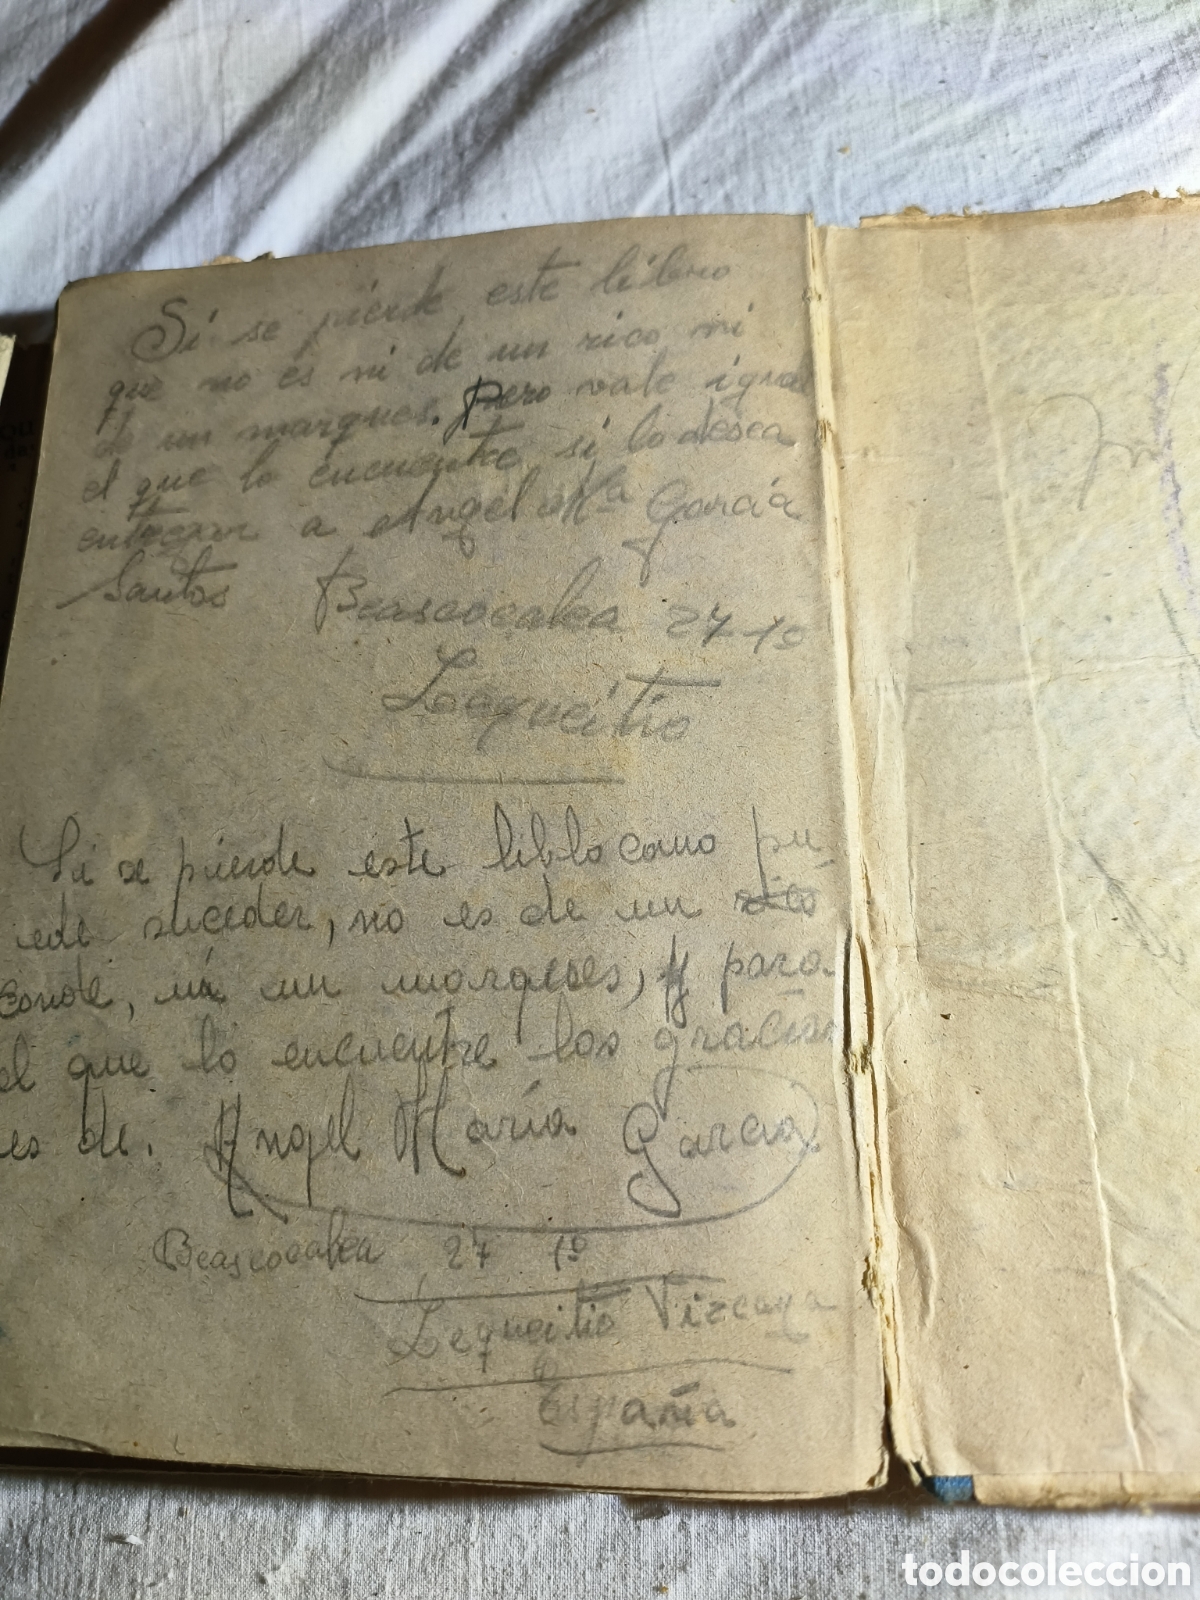 Si se pierde este libro
que no es ni de un rico ni
de un marques. pero vale igual
el que lo encuentre si lo desea
entregar a Angel Mª García
Santos Beascocalea 27-1º
Lequeitio
Si se pierde este liblo como pu
ede suceder, no es de un rico
conde, ni un marqeses, y para
el que lo encuentre los gracias
es de. Angel María García
Beascocalea 27 1º
Lequeitio Vizcaya
España
todocoleccion